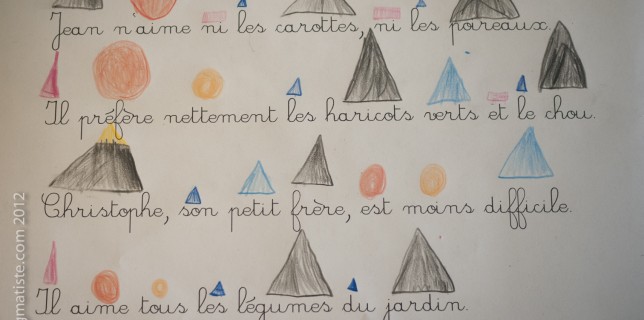 Jean n'aime ni les carottes, ni les poireaux.
Il préfère nettement les haricots verts et le chou.
Christophe, son petit frère, est moins difficile.
Il aime tous les légumes du jardin.
gmatiste.com 2012